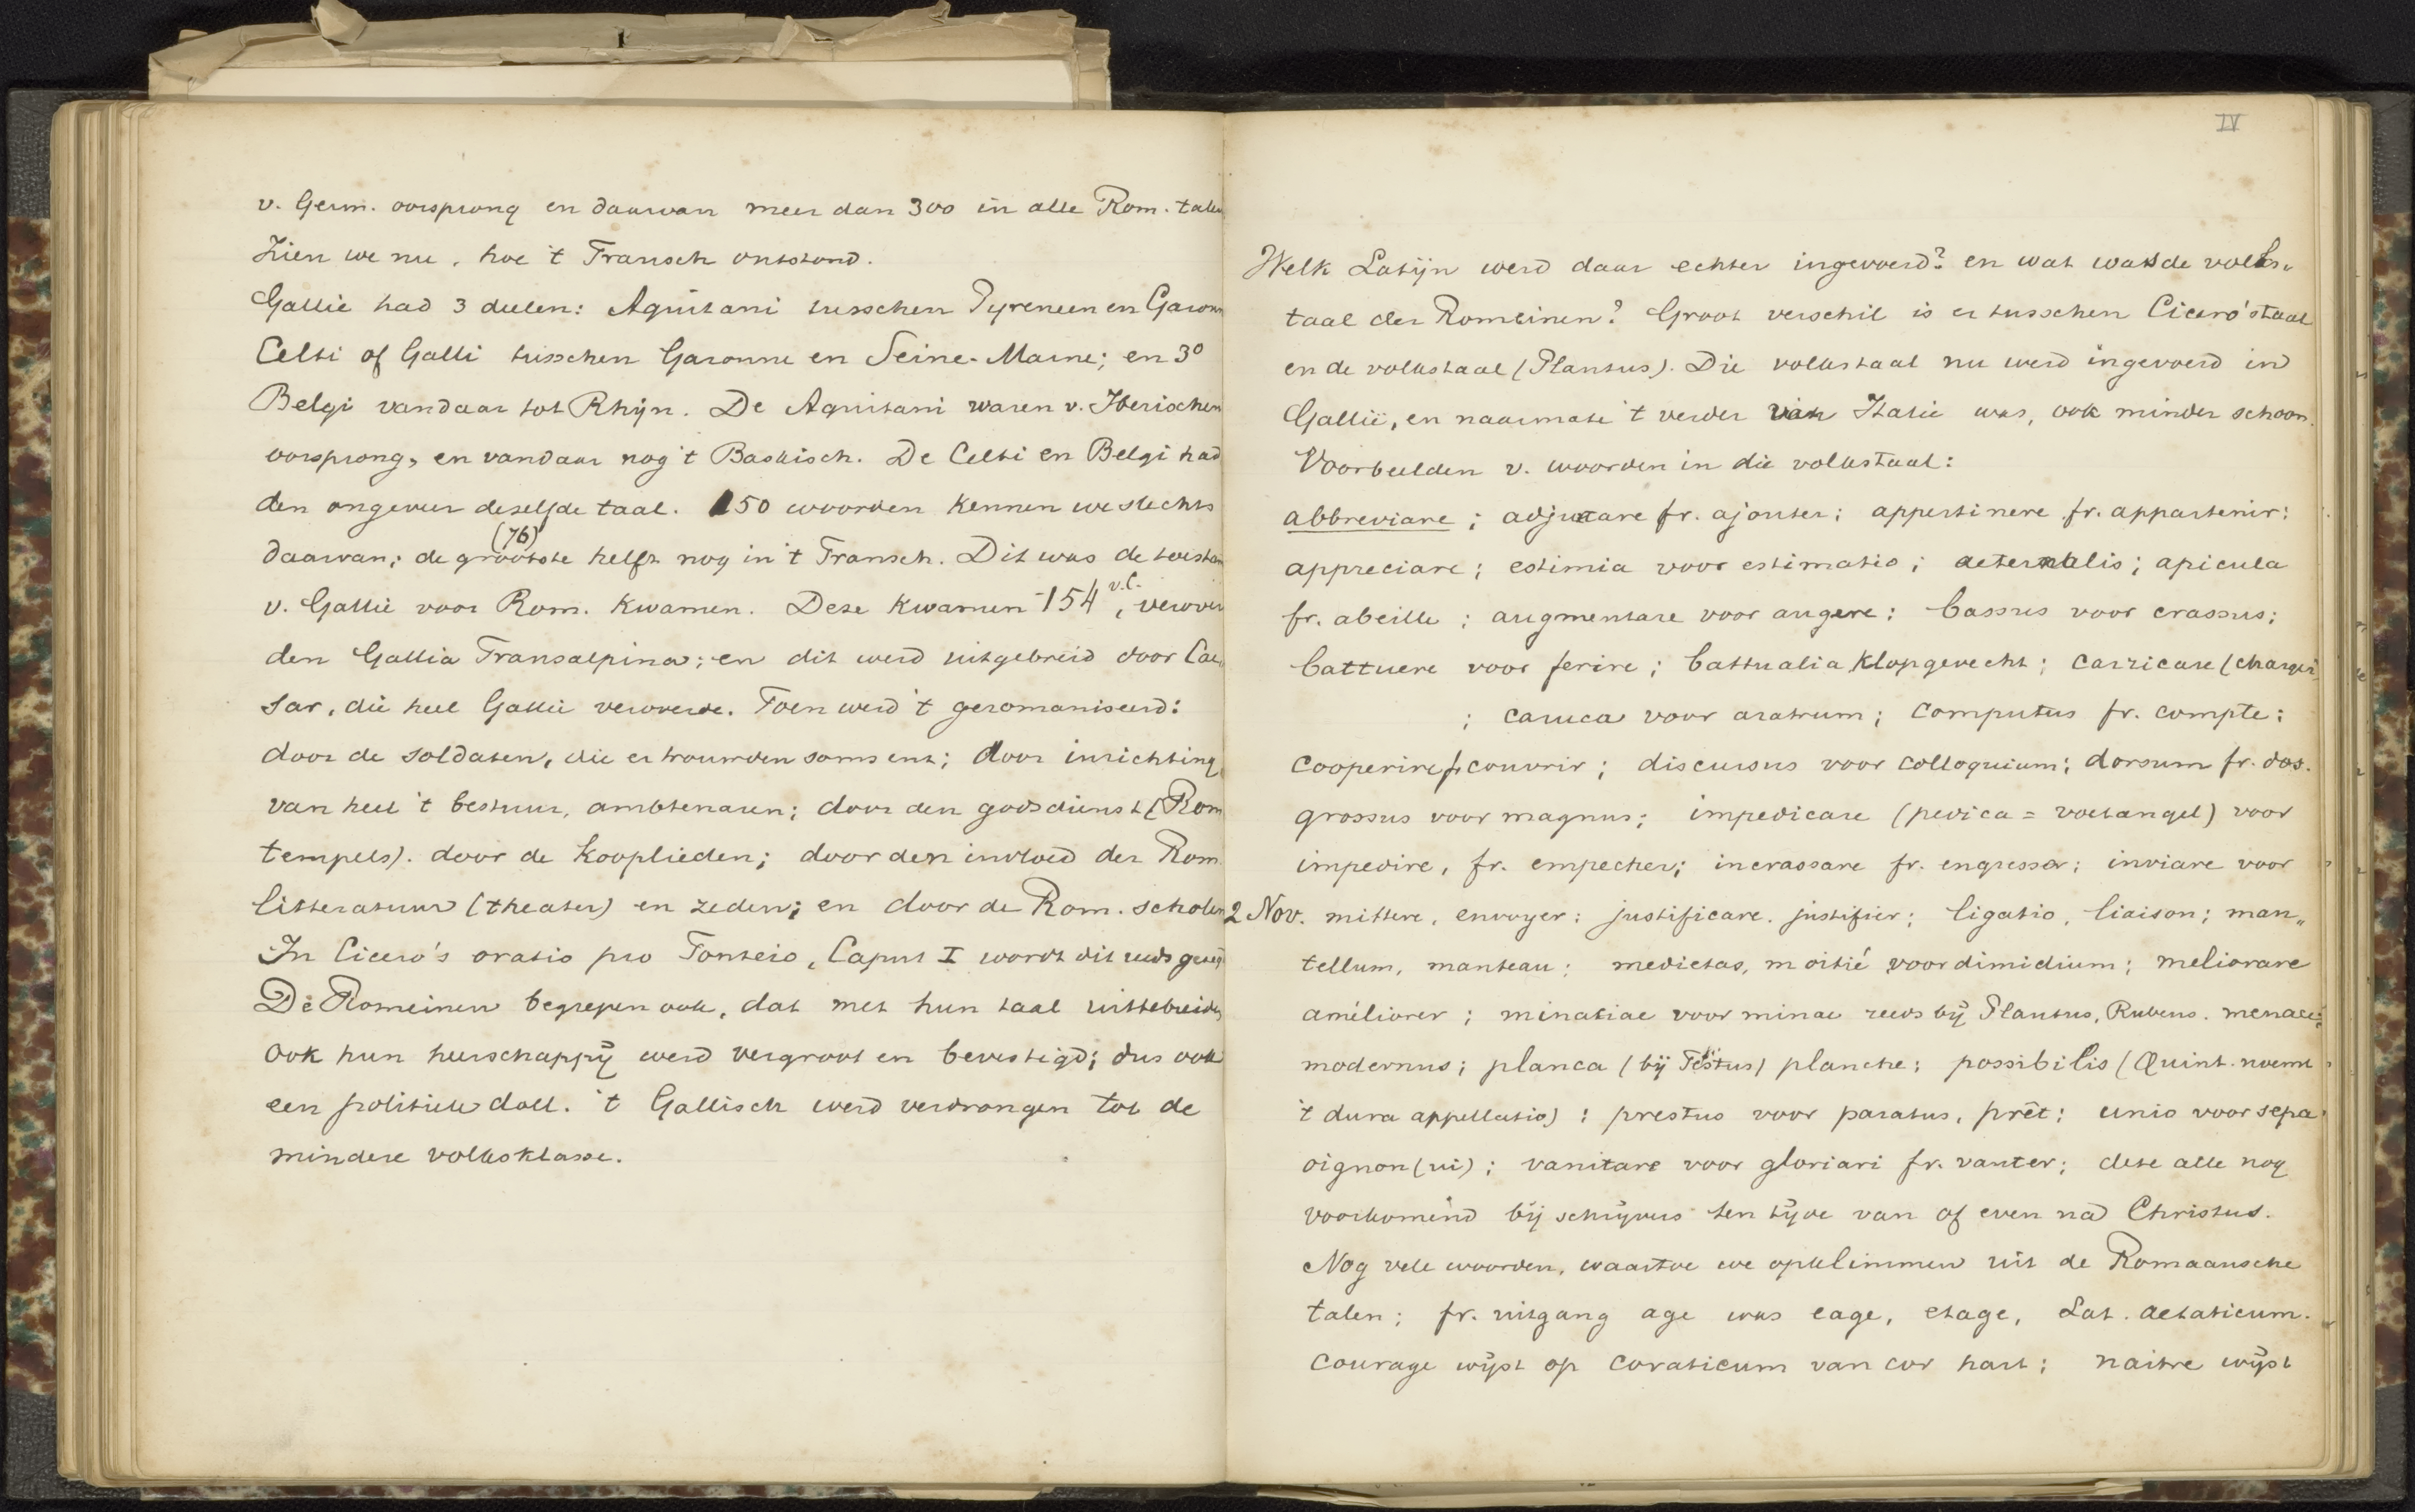 v. Germ. oorsprong en daarvan meer dan 300 in alle Rom. talen
Zien we nu, hoe 't Fransch ontstond.
Gallië had 3 deelen: Aquitani tusschen Pyreneen en Garonn
Celti of Galli tusschen Garonne en Seine-Marne; en 3o
Belgi vandaar tot Rhijn. De Aquitani waren v. Iberischen
oorsprong, en vandaar nog 't Baskisch. De Celti en Belgi had
den ongeveer dezelfde taal. 150 woorden kennen we slechts
(76)
daarvan; de grootste helft nog in 't Fransch. Dit was de toestan
v. Gallië voor Rom. kwamen. Deze kwamen -154 v.C., verover
den Gallia Transalpina; en dit werd uitgebreid door Cae
sar, die heel Gallië veroverde. Toen werd 't geromaniseerd:
door de soldaten, die er trouwden soms enz; door inrichting
van heel 't bestuur, ambtenaren; door den godsdienst (Rom
tempels). door de kooplieden; door den invloed der Rom.
litteratuur (theater) en zeden; en door de Rom. scholen
In Cicero's oratio pro Fonteio, Caput I wordt dit reeds gezeg
De Romeinen begrepen ook, dat met hun taal uittebreiden
ook hun heerschappij werd vergroot en bevestigd; dus ook
een politiek doel. 't Gallisch werd verdrongen tot de
mindere volksklasse.
IV
Welk Latijn werd daar echter ingevoerd? en wat was de volks„
taal der Romeinen? Groot verschil is er tusschen Cicero's taal
en de volkstaal (Plautus). Die volkstaal nu werd ingevoerd in
Gallië, en naarmate 't verder van Italië was, ook minder schoon.
Voorbeelden v. woorden in die volkstaal:
abbreviare; adjuxtare fr. ajouter; appertinere fr. appartenir;
appreciare; estimia voor estimatio; aeternalis; apicula
fr. abeille; augmentare voor augere; bassus voor crassus;
battuere voor ferire; battualia klopgevecht; carricare (charger)
; caruca voor aratrum; computus fr. compte;
cooperire fr couvrir; discursus voor colloquium; dorsum fr. dos.
grossus voor magnus; impedicare (pedica = voetangel) voor
impedire, fr. empecher; incrassare fr. engresser; inviare voor
2 Nov. mittere, envoyer; justificare. justifier; ligatio, liaison; man„
tellum, manteau; medietas, moitié voor dimidium; meliorare
améliorer; minatiae voor minae reeds bij Plautus, Rubens. menace;
modernus; planca (bij Festus) planche; possibilis (Quint. noemt
't dura appellatio); prestus voor paratus, prêt; unio voor sepa
oignon (ui); vanitare voor gloriari fr. vanter; deze alle nog
voorkomend bij schrijvers ten tijde van of even na Christus.
Nog vele woorden, waartoe we opklimmen uit de Romaansche
talen; fr. uitgang age was eage, etage, Lat. aetaticum.
courage wijst op coraticum van cor hart; naitre wijst